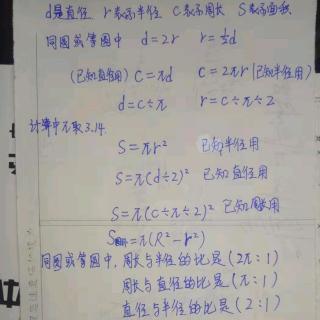 d是直径 r表示半径 C表示周长 S表示面积
同圆或等圆中 d=2r r=½d
(已知直径用) C=πd C=2πr(已知半径用)
d=C÷π r=C÷π÷2
计算中π取3.14.
S=πr² 已知半径用
S=π(d÷2)² 已知直径用
S=π(C÷π÷2)² 已知周长用
S圆环=π(R²-r²)
同圆或等圆中,周长与半径的比是(2π:1)
周长与直径的比是(π:1)
直径与半径的比是(2:1)